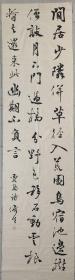 閒居少鄰併草徑入荒園鳥宿池邊樹
僧敲月下門過橋分野色移石動雲根
暫去還來此幽期不負言
賈島詩